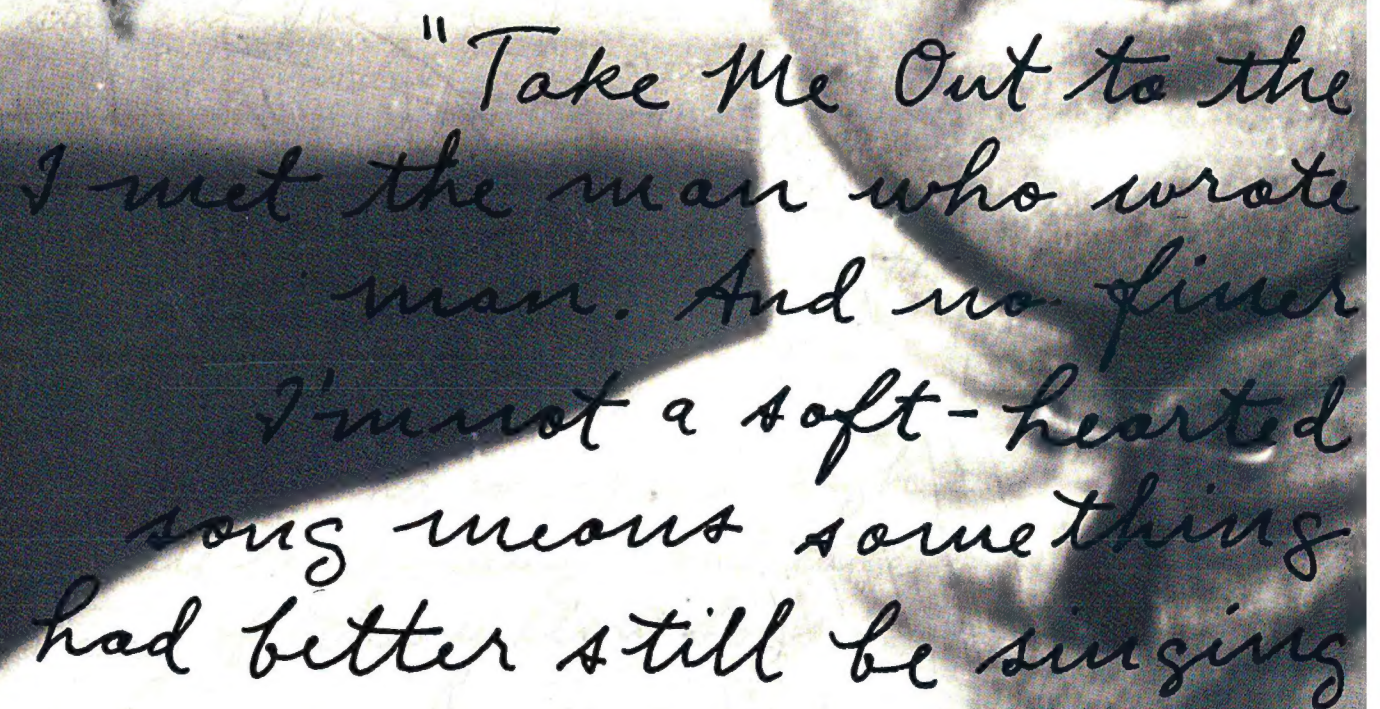 "Take Me Out to the
I met the man who wrote
man. And no finer
I'm not a soft-hearted
song means something
had better still be singing